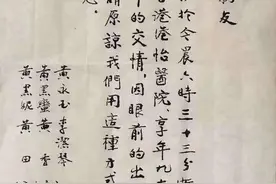 友
於今晨六時三十三分
港港怡醫院,享年九
的交情,因眼前的出
原諒我們用這種方式
黃永玉 李潔琴
黃黑蠻 黃香
黃黑妮 黃田